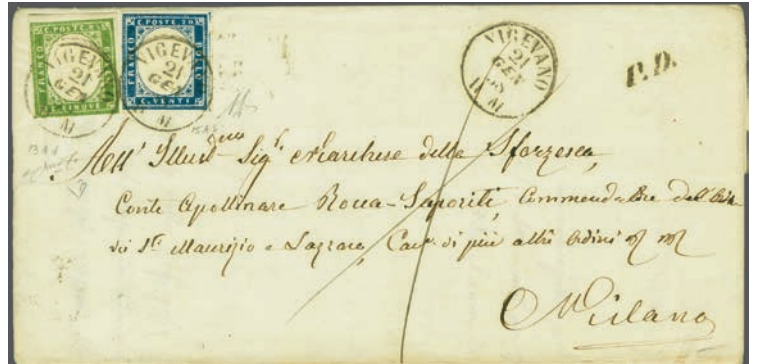 C. POSTE 5
FRANCO
BOLLO
C. CINQUE
C. POSTE 20
FRANCO
BOLLO
C. VENTI
VIGEVANO
21
GEN
M
VIGEVANO
21
GEN
M
VIGEVANO
21
GEN
58
M
P.D.
All' Illus.mo Sig.r Marchese della Sforzesca
Conte Apollinare Rocca-Saporiti, Commendatore dell' Ordi-
S.ti Maurizio e Lazzaro, Cav. di più altri Ordini
Milano